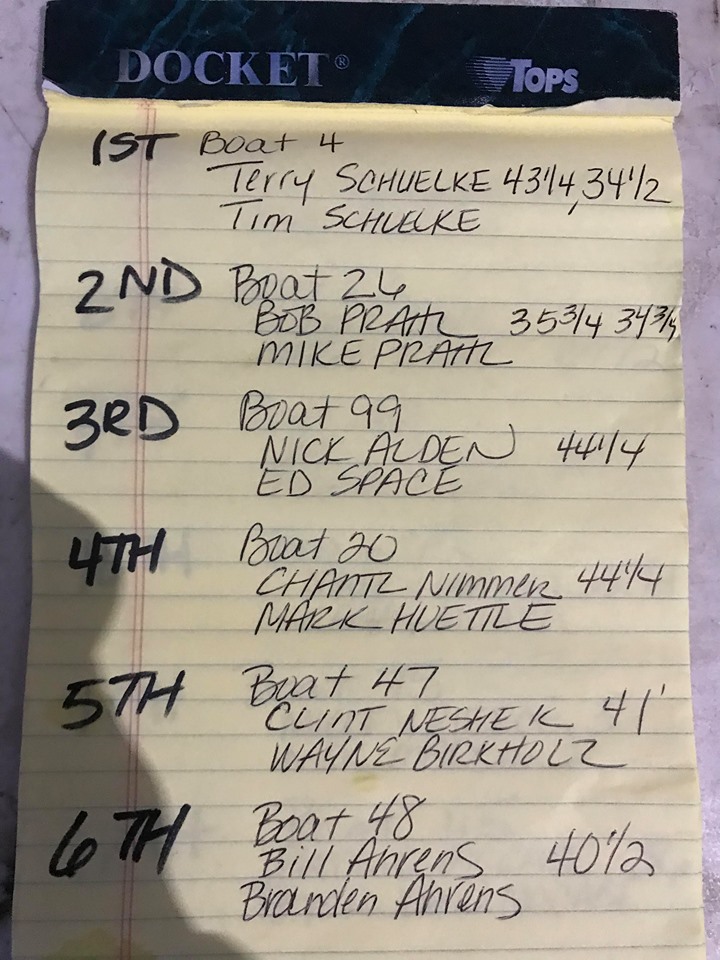 DOCKET® TOPS
1ST Boat 4
Terry SCHUELKE 43 1/4, 34 1/2
Tim SCHUELKE
2ND Boat 26
BOB PRAHL 35 3/4 34 3/4
MIKE PRAHL
3RD Boat 99
NICK ALDEN 44 1/4
ED SPACE
4TH Boat 20
Nimmer 44 1/4
MARK HUETTLE
5TH Boat 47
CLINT NESHEK 41'
WAYNE BIRKHOLZ
6TH Boat 48
Bill Ahrens 40 1/2
Branden Ahrens